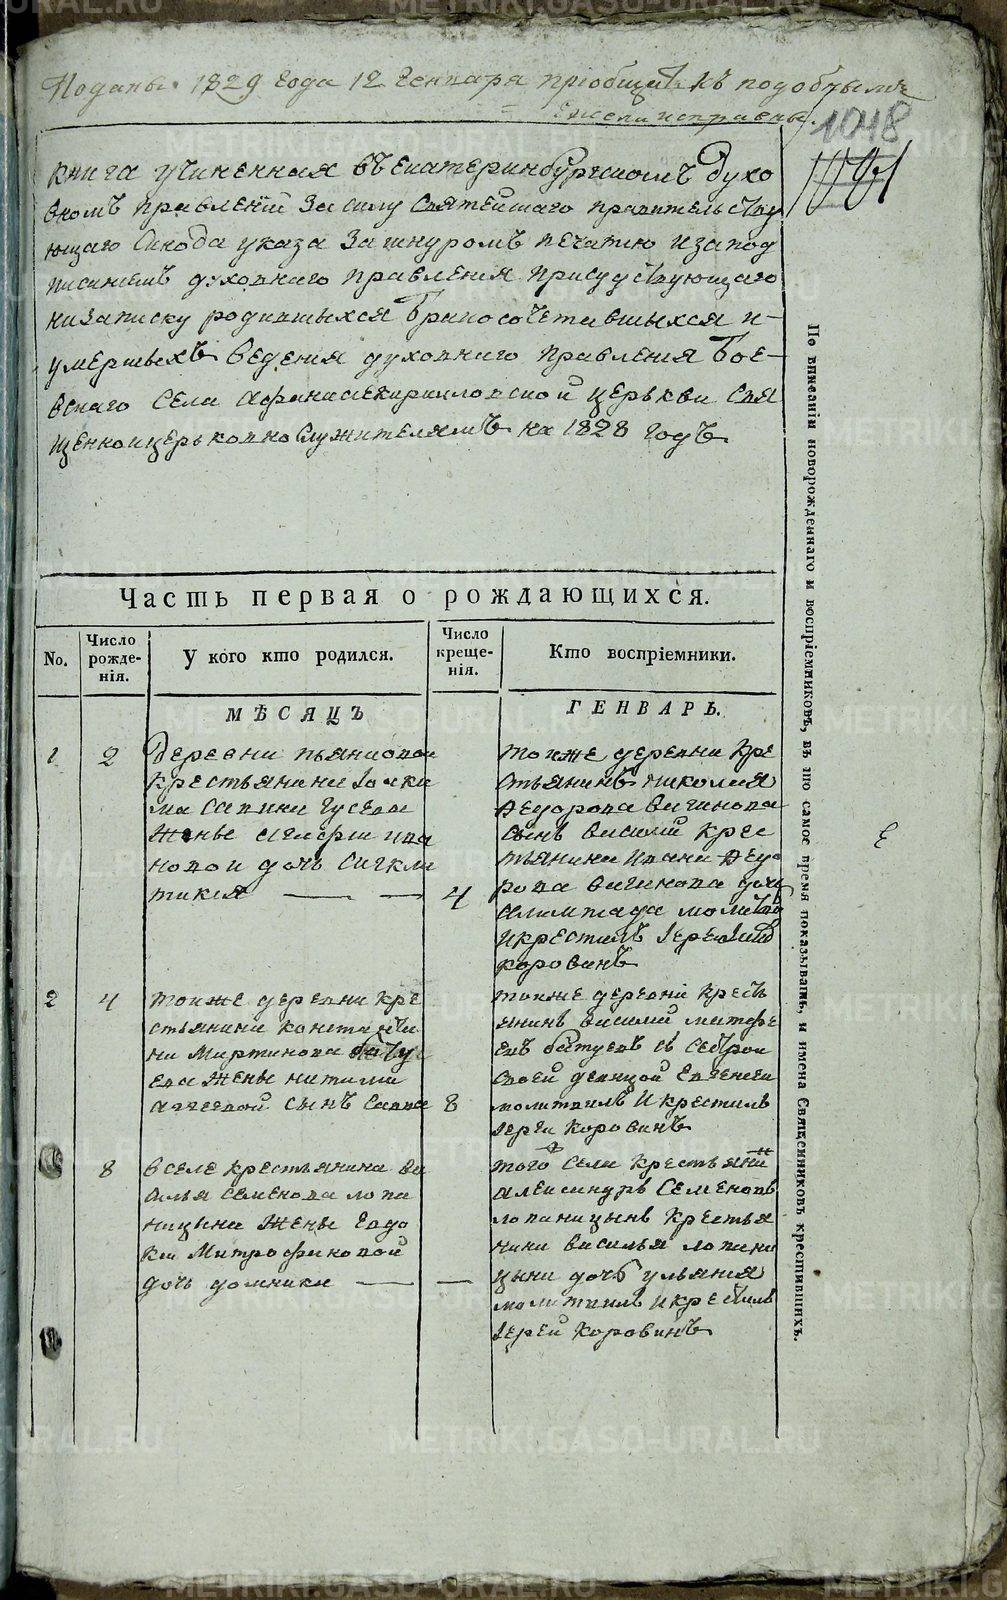 Поданы 1829 года 12 Генваря приобщить къ подобнымъ
ежели исправны.
1048
книга учиненная въ Екатеринбургскомъ Духо
вномъ правленіи Засилу Святейшаго правительству
ющаго Синода указа Зашнуромъ печатью изапод
писаниемъ духовнаго правления присудствующаго
назаписку родившыхся Бракосочетавшыхся и
умершыхъ ведения духовнаго правления Бое-
вскаго Села Афанасиекирилловской церькви Свя
щенноцерьковнослужителямъ на 1828 годъ
Часть первая о рождающихся.
No.
Число рожде-нія.
У кого кто родился.
Число креще-нія.
Кто воспріемники.
МѢСЯЦЪ
ГЕНВАРЬ.
1
2
Деревни
крестьянина Iоаки
ма Савина Гусева
Женые Ива
новой дочь Сигкли
тикия
4
тойже деревни кре
стьянинъ николая
Феодорова Вагинова
сынъ Василий крес
тьянина Ивана Фео
рова Вагинова дочь
Алимпиада молитв
икрестилъ Iерей
коровинъ
2
4
тойже деревни кре
стьянина Константи
на Мартинова Бату
ева Жены наталии
Агеевой сынъ Савва
8
тойже деревни кресть
янинъ Василий матфе
евъ батуевъ съ Сестрои
своей девицой Евгенией
молитвилъ И крестилъ
Iерей Коровинъ
8
Вселе крестьянина Ва
силья Семенова лопа
ницына Жены Евдо
кии Митрофановой
дочь домника
того Села крестьянинъ
Александръ Семеновъ
лопаницынъ крестья
нина Василья лопани
цына дочь ульяния
молитвилъ И крестилъ
Iерей Коровинъ
По вписаніи новорожденнаго и воспріемниковъ, въ то самое время показывать, и имена Священниковъ крестившихъ.
METRIKI.GASO-URAL.RU